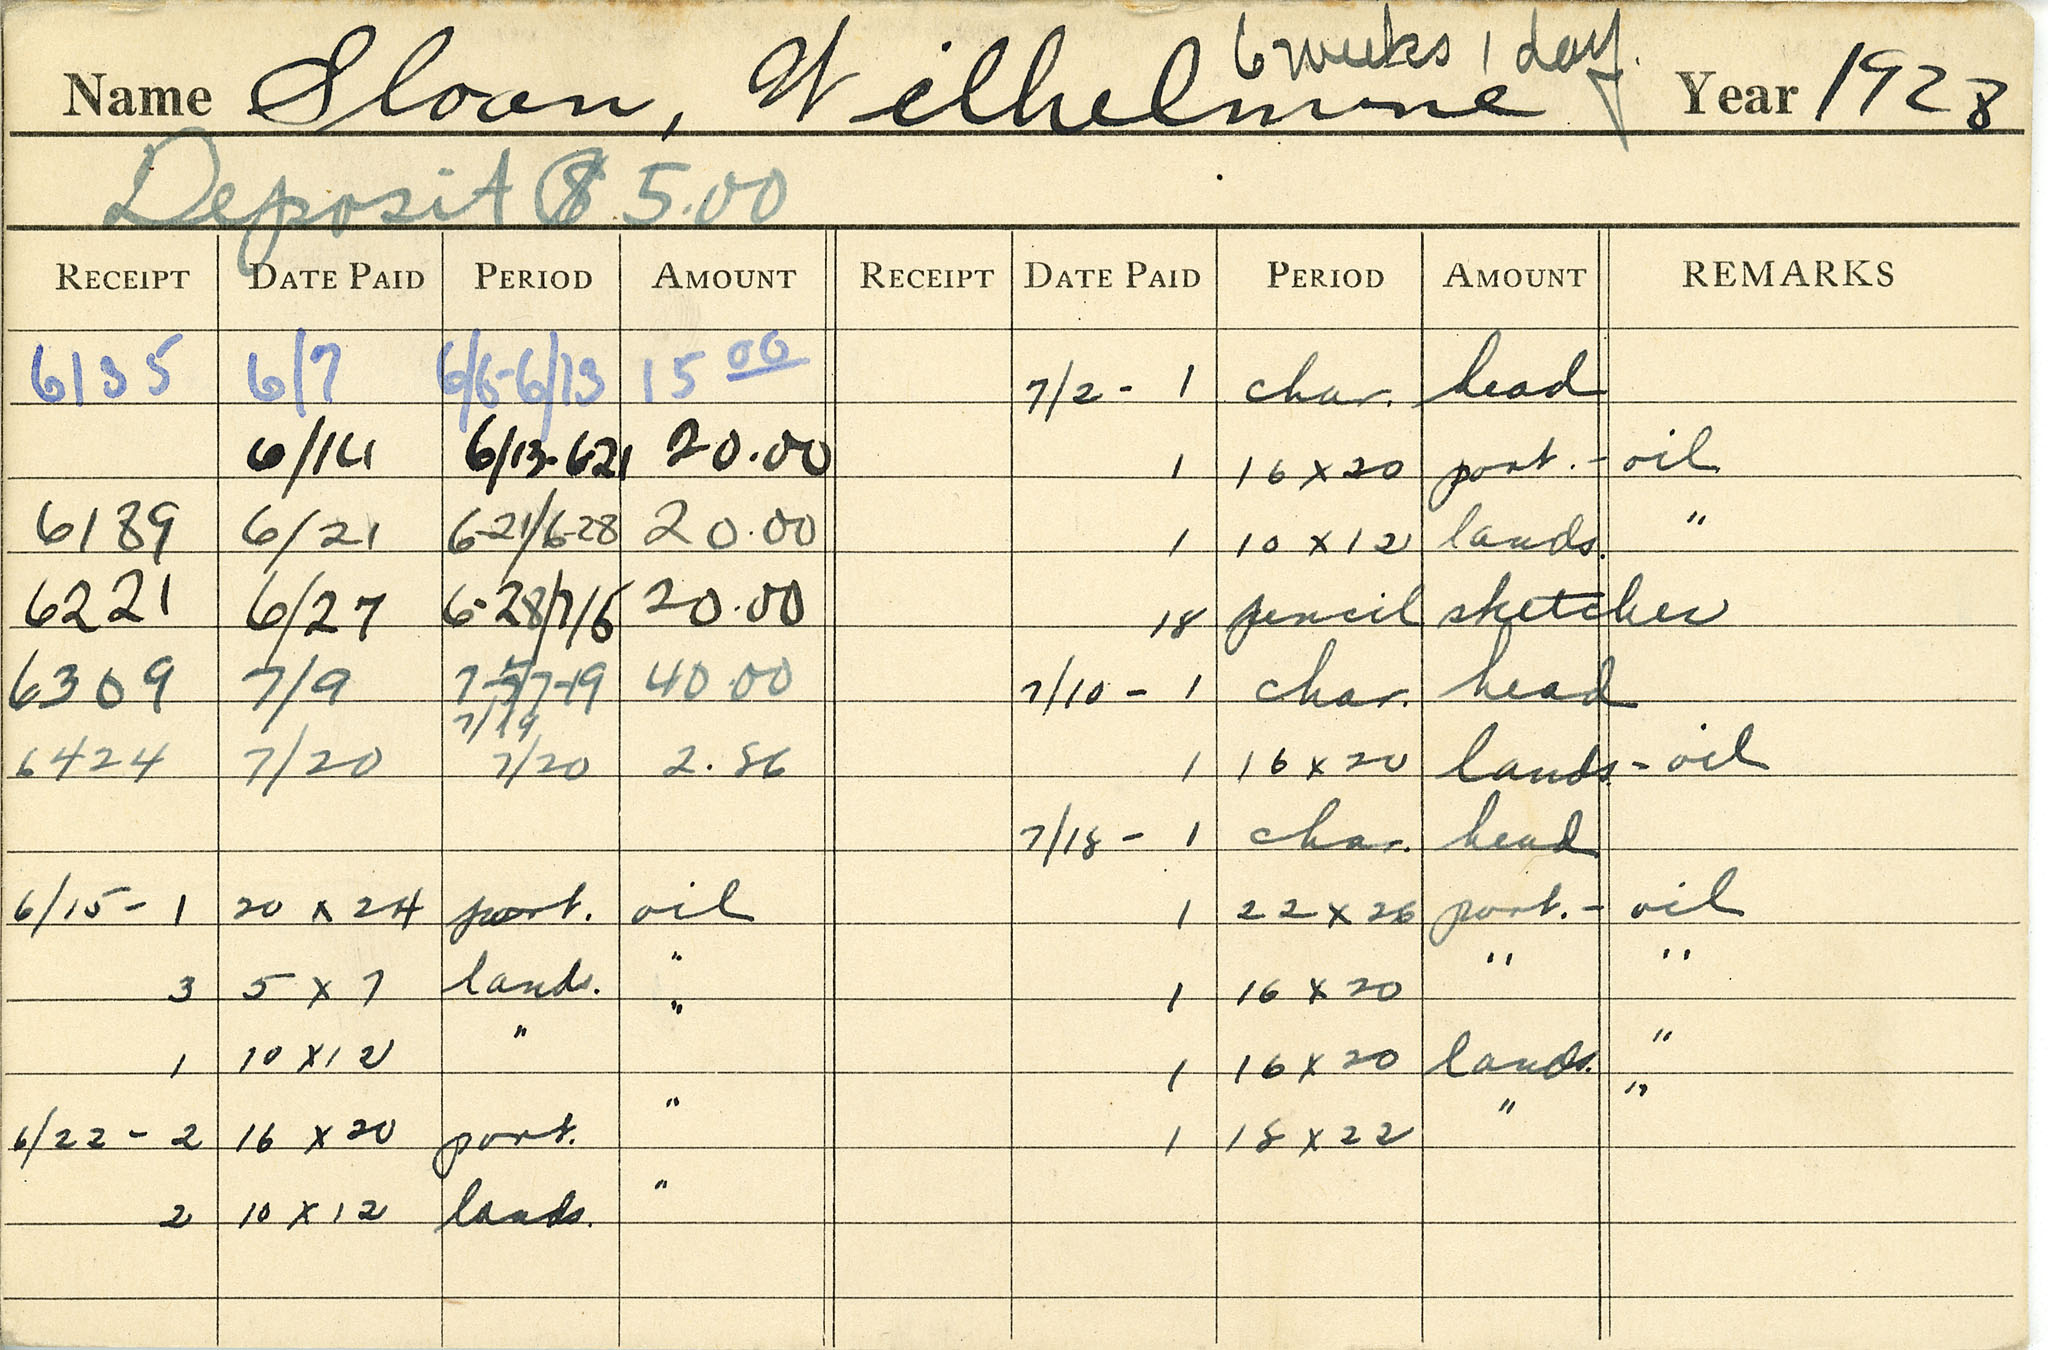 6 weeks 1 day.
Name Sloan, Wilhelmine Year 1928
Deposit $5.00
RECEIPT DATE PAID PERIOD AMOUNT RECEIPT DATE PAID PERIOD AMOUNT REMARKS
6135 6/7 6/6-6/13 15 00 7/2 - 1 char. head
6/14 6/13-621 20.00 1 16 x 20 port. - oil
6189 6/21 6-21/6-28 20.00 1 10 x 12 lands. "
6221 6/27 6-28/7/5 20.00 18 pencil sketches
6309 7/9 7-5/7-19 40.00 7/10 - 1 char. head
7/19
6424 7/20 7/20 2.86 1 16 x 20 lands. - oil
7/18 - 1 char. head
6/15 - 1 20 x 24 port. oil 1 22 x 26 port. - oil
3 5 x 7 lands. " 1 16 x 20 " "
1 10 x 12 " " 1 16 x 20 lands. "
6/22 - 2 16 x 20 port. " 1 18 x 22 " "
2 10 x 12 lands. "